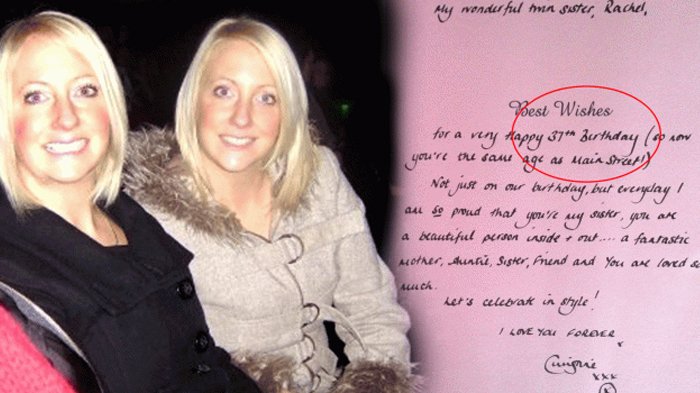 My wonderful twin sister, Rachel,
Best Wishes
for a very Happy 37th Birthday (so now
you're the same age as Main Street!)
Not just on our birthday, but everyday I
am so proud that you're my sister, you are
a beautiful person inside + out.... a fantastic
mother, Auntie, Sister, Friend and you are loved so
much.
Let's celebrate in style!
I LOVE YOU FOREVER
x
xxx